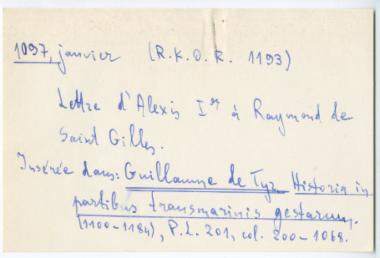 1097, janvier (R.K.O.R. 1193)
Lettre d'Alexis Ier à Raymond de
Saint Gilles.
Insérée dans: Guillaume de Tyr Historia in
partibus transmarinis gestarum.
(1100-1184), P.L. 201, col. 200-1068.